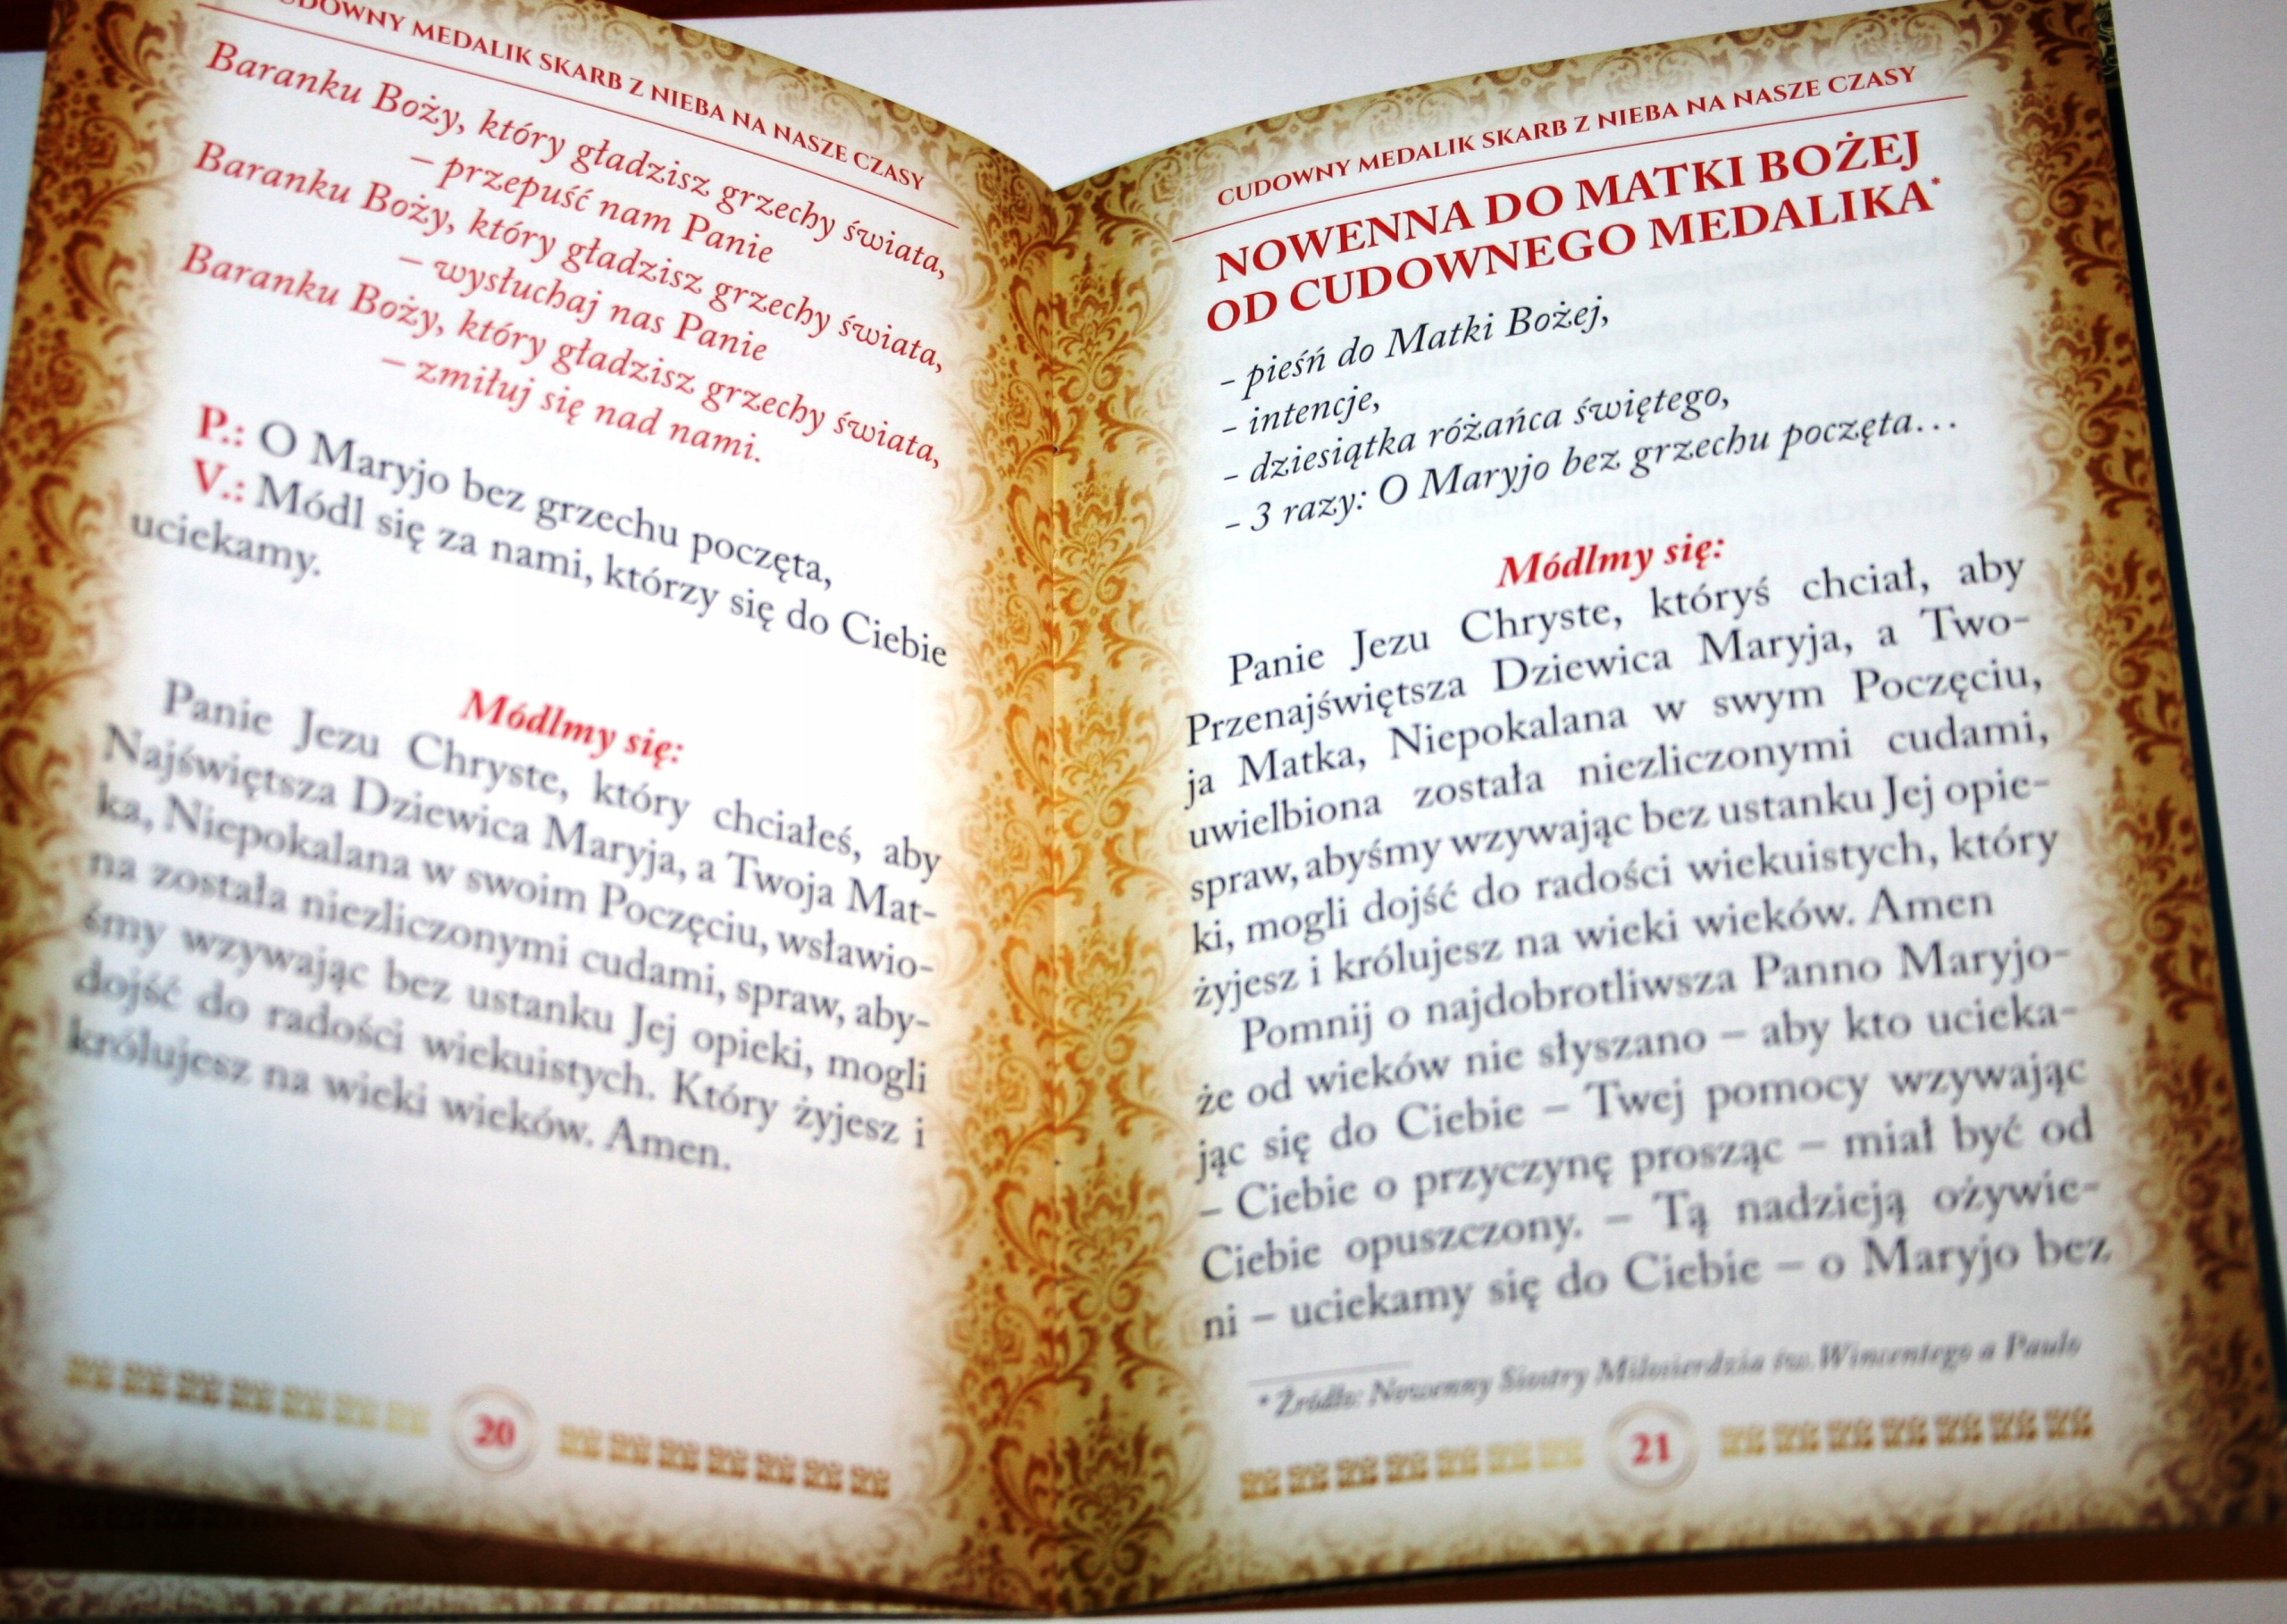 CUDOWNY MEDALIK SKARB Z NIEBA NA NASZE CZASY
Baranku Boży, który gładzisz grzechy świata,
– przepuść nam Panie
Baranku Boży, który gładzisz grzechy świata,
– wysłuchaj nas Panie
Baranku Boży, który gładzisz grzechy świata,
– zmiłuj się nad nami.
P.: O Maryjo bez grzechu poczęta,
V.: Módl się za nami, którzy się do Ciebie
uciekamy.
Módlmy się:
Panie Jezu Chryste, który chciałeś, aby
Najświętsza Dziewica Maryja, a Twoja Mat-
ka, Niepokalana w swoim Poczęciu, wsławio-
na została niezliczonymi cudami, spraw, aby-
śmy wzywając bez ustanku Jej opieki, mogli
dojść do radości wiekuistych. Który żyjesz i
królujesz na wieki wieków. Amen.
20
CUDOWNY MEDALIK SKARB Z NIEBA NA NASZE CZASY
NOWENNA DO MATKI BOŻEJ
OD CUDOWNEGO MEDALIKA*
– pieśń do Matki Bożej,
– intencje,
– dziesiątka różańca świętego,
– 3 razy: O Maryjo bez grzechu poczęta...
Módlmy się:
Panie Jezu Chryste, któryś chciał, aby
Przenajświętsza Dziewica Maryja, a Two-
ja Matka, Niepokalana w swym Poczęciu,
uwielbiona została niezliczonymi cudami,
spraw, abyśmy wzywając bez ustanku Jej opie-
ki, mogli dojść do radości wiekuistych, który
żyjesz i królujesz na wieki wieków. Amen
Pomnij o najdobrotliwsza Panno Maryjo-
że od wieków nie słyszano – aby kto ucieka-
jąc się do Ciebie – Twej pomocy wzywając
– Ciebie o przyczynę prosząc – miał być od
Ciebie opuszczony. – Tą nadzieją ożywie-
ni – uciekamy się do Ciebie – o Maryjo bez
* Źródło: Nowenny Siostry Miłosierdzia św. Wincentego a Paulo
21